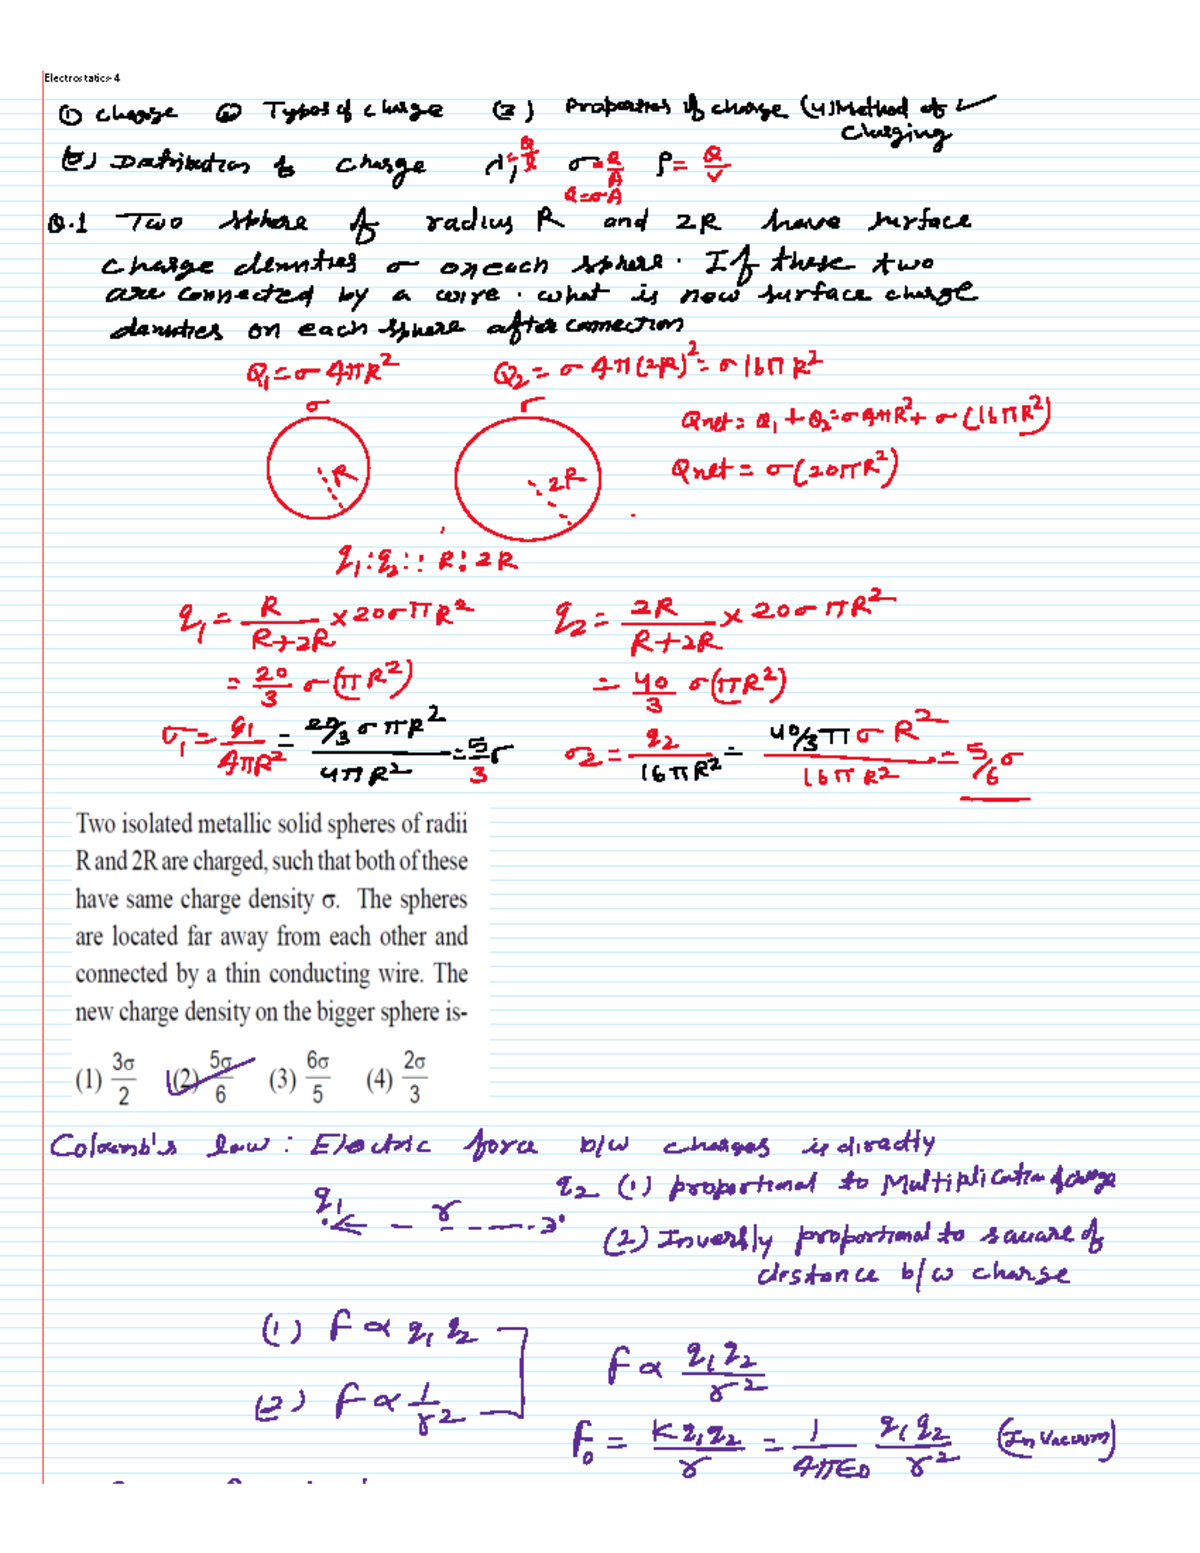 Electrostatics-4
① Charge ② Types of charge (3) Properties of charge (4) Method of charging
(5) Distribution of charge λ = Q/l, σ = Q/A ρ = Q/V
Q = σA
Q.1 Two sphere of radius R and 2R have surface
charge densities σ on each sphere. If these two
are connected by a wire. what is new surface charge
densities on each sphere after connection
Q₁ = σ 4πR² Q₂ = σ 4π(2R)² = σ 16πR²
σ σ
Qnet = Q₁ + Q₂ = σ4πR² + σ(16πR²)
R 2R
Qnet = σ(20πR²)
q₁ : q₂ : : R : 2R
q₁ = R/(R+2R) × 20σπR² q₂ = 2R/(R+2R) × 20σπR²
= 20/3 σ(πR²) = 40/3 σ(πR²)
σ₁ = q₁/4πR² = (20/3 σπR²)/(4πR²) = 5/3 σ σ₂ = q₂/16πR² = (40/3 πσR²)/(16πR²) = 5/6 σ
Two isolated metallic solid spheres of radii
R and 2R are charged, such that both of these
have same charge density σ. The spheres
are located far away from each other and
connected by a thin conducting wire. The
new charge density on the bigger sphere is-
(1) 3σ/2 (2) 5σ/6 (3) 6σ/5 (4) 2σ/3
Coloumb's law : Electric force b/w charges is directly
q₁ r q₂ (1) proportional to Multiplication of charge
(2) Inversly proportional to square of
distance b/w charge
(1) F ∝ q₁ q₂
F ∝ q₁q₂/r²
(2) F ∝ 1/r²
F₀ = Kq₁q₂/r = 1/4πε₀ q₁q₂/r² (In vacuum)